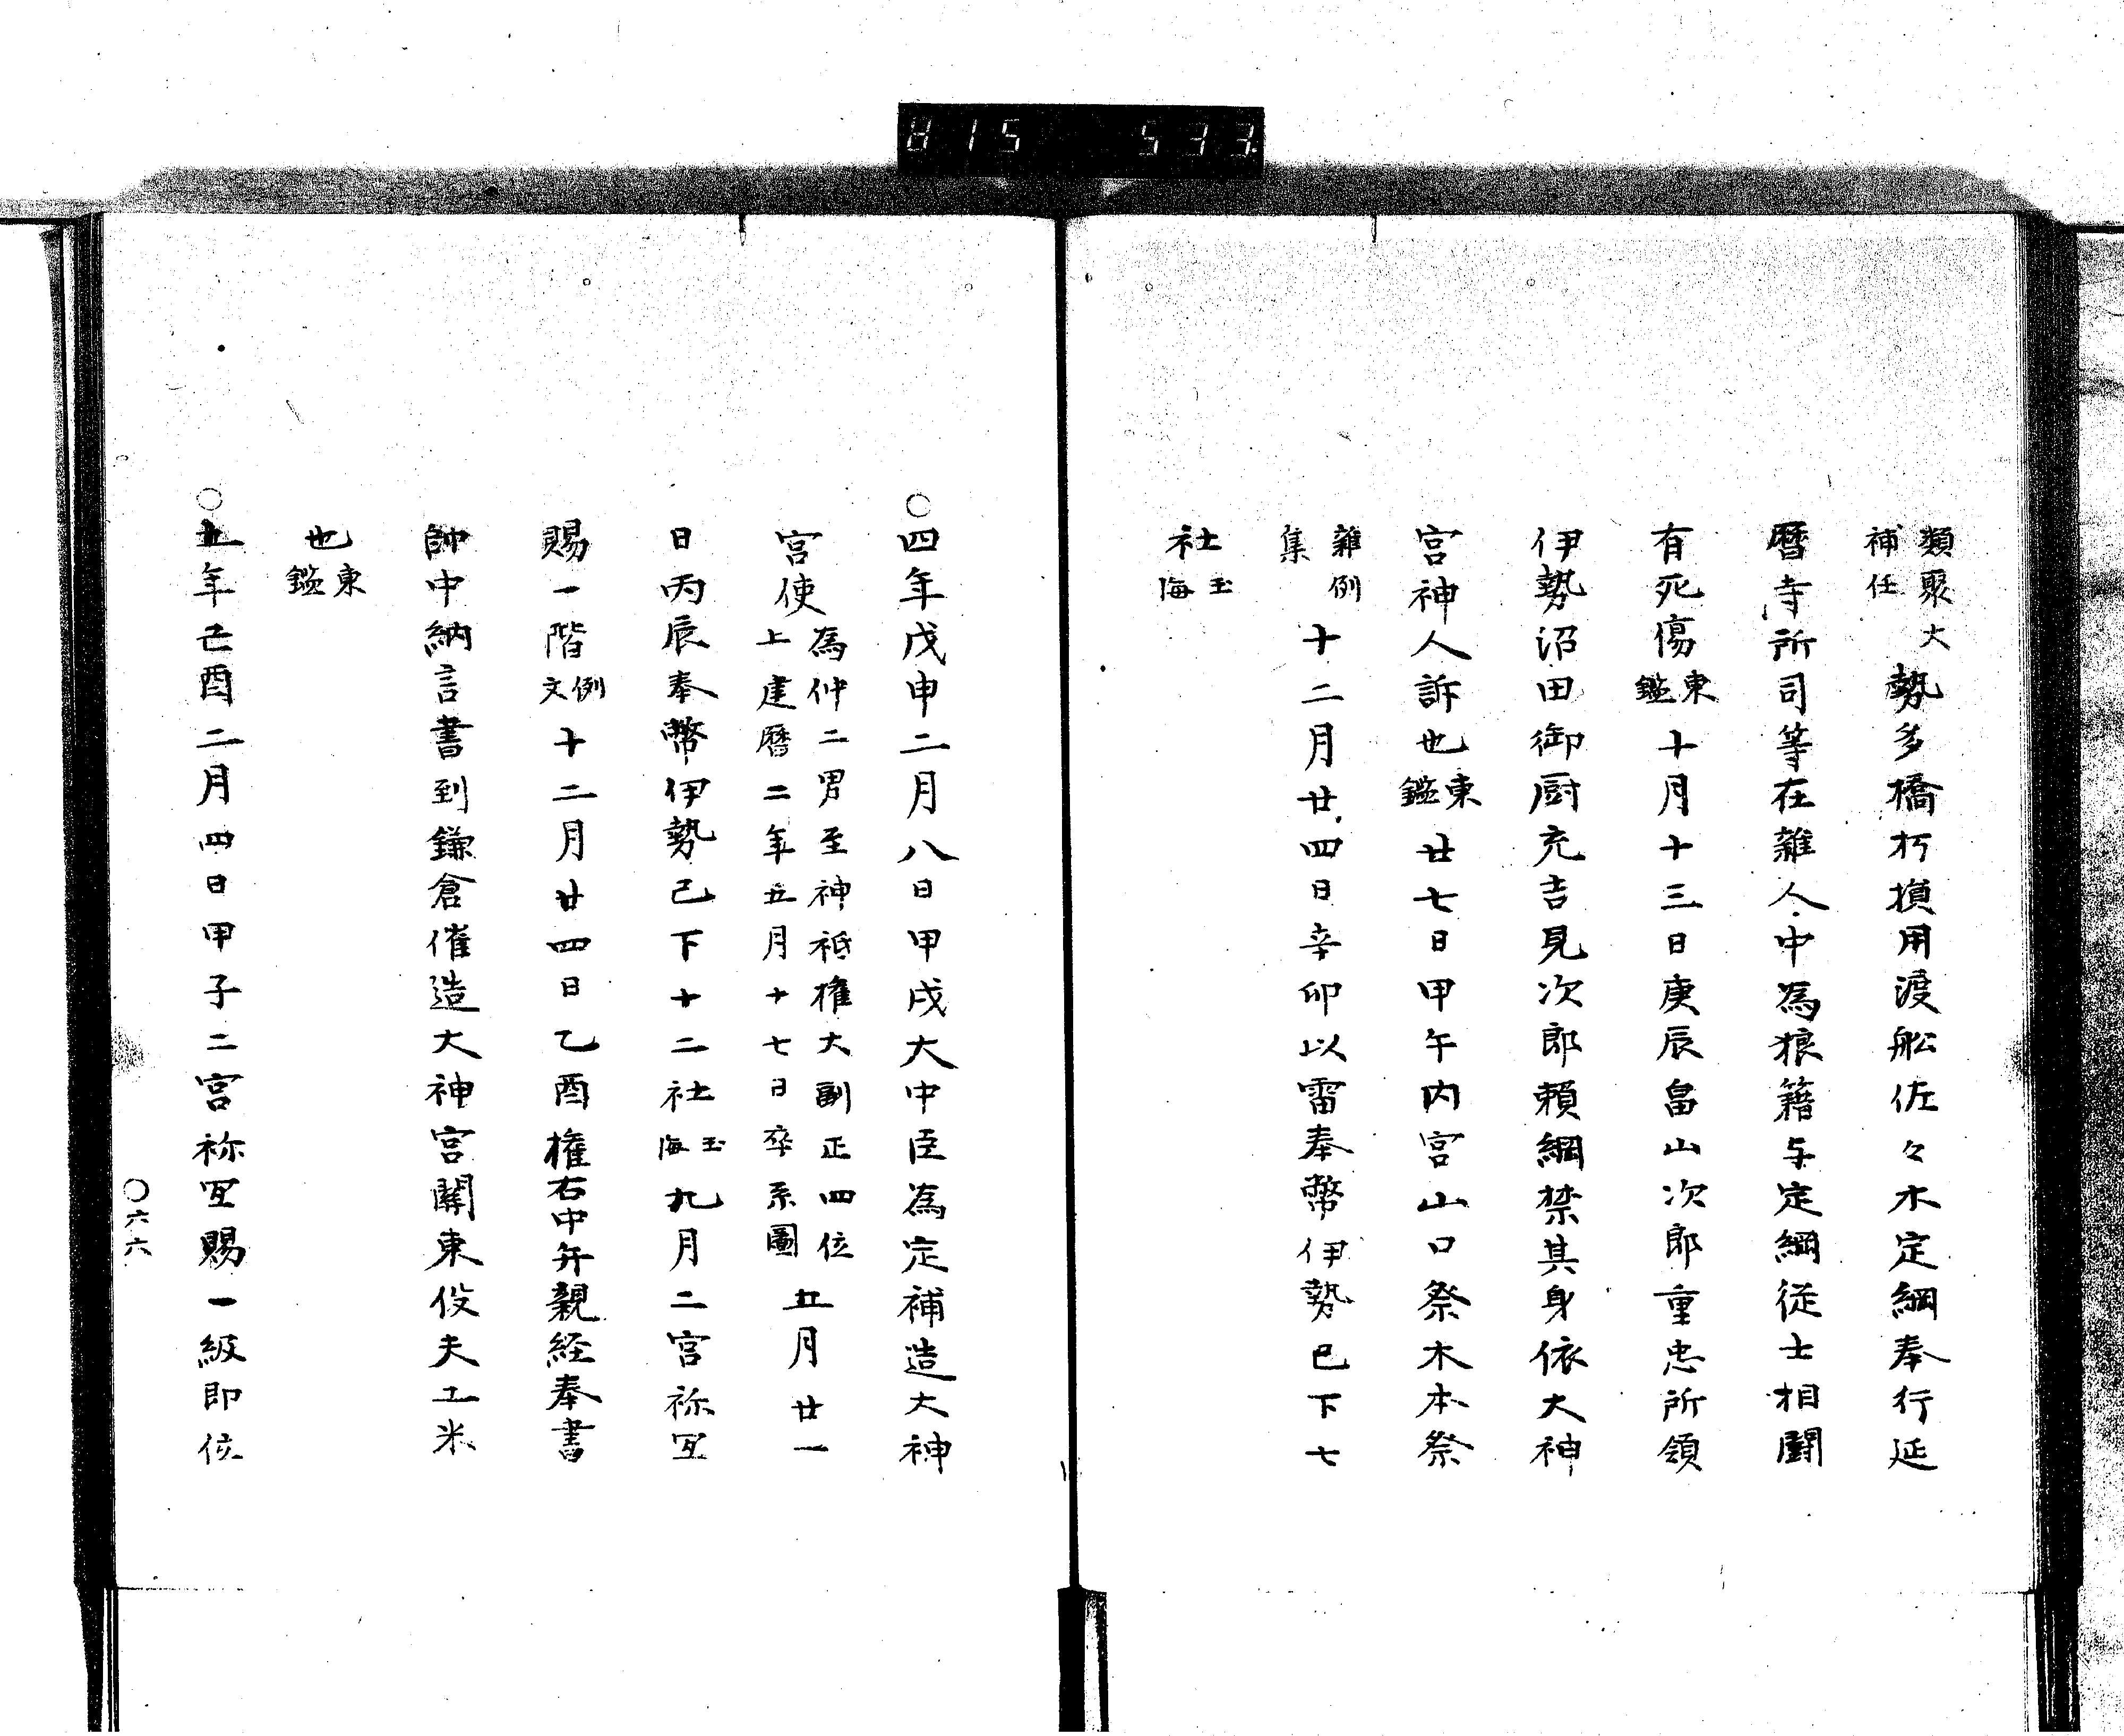 815 533
類聚大補任勢多橋朽損用渡舩佐々木定綱奉行延
暦寺所司等在雜人中為狼籍与定綱従士相鬪
有死傷東鑑十月十三日庚辰畠山次郎重忠所領
伊勢沼田御厨充吉見次郎頼綱禁其身依大神
宮神人訴也東鑑廿七日甲午内宮山口祭木本祭
雜例集十二月廿四日辛卯以雷奉幣伊勢已下七
社玉海
○四年戊申二月八日甲戌大中臣為定補造大神
宮使為仲二男至神祇権大副正四位上建暦二年五月十七日卒系圖五月廿一
日丙辰奉幣伊勢已下十二社玉海九月二宮祢冝
賜一階例文十二月廿四日乙酉権右中弁親経奉書
帥中納言書到鎌倉催造大神宮関東役夫工米
也東鑑
○五年己酉二月四日甲子二宮祢冝賜一級即位
○六六